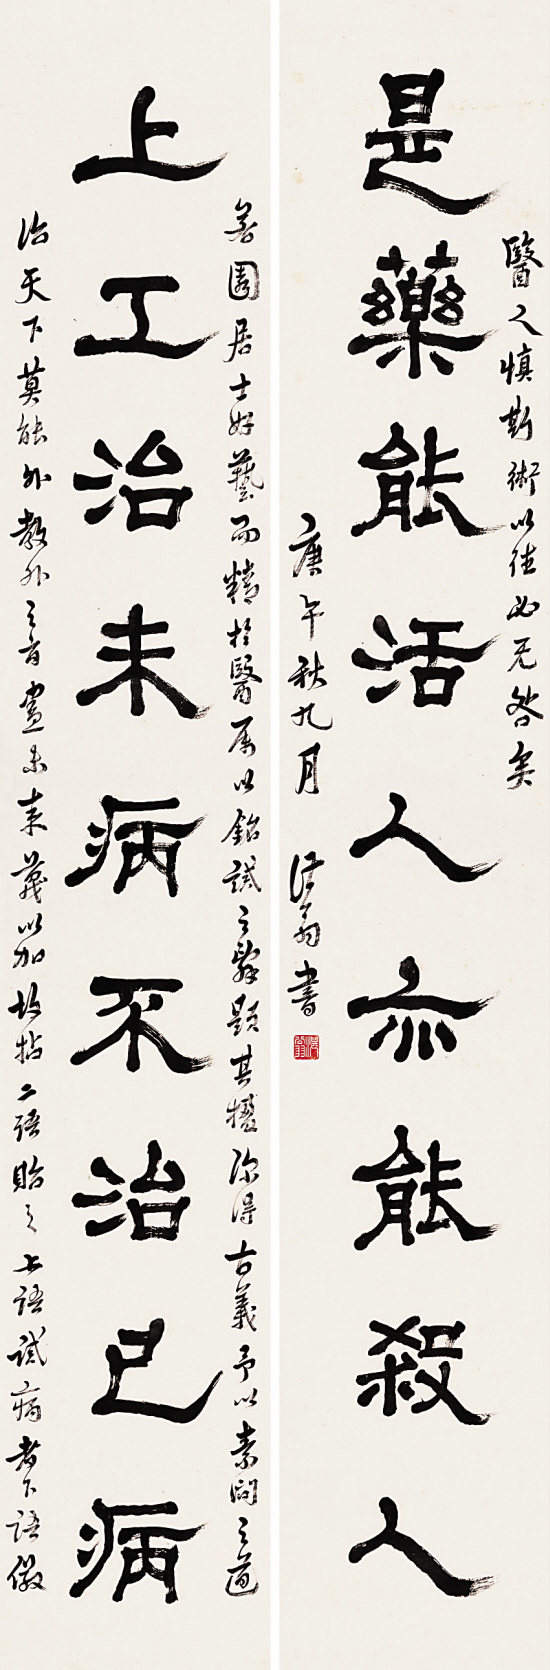 是藥能活人亦能殺人
上工治未病不治已病
園居士好藝而精於醫屬以銘誡之辭題其楹深得古義予以素問之道
治天下莫能外教外之旨盡未来蔑以加故拈二語貽之上語誡病者下語儆
醫人慎斯術以往必无咎矣
庚午秋九月 翁書